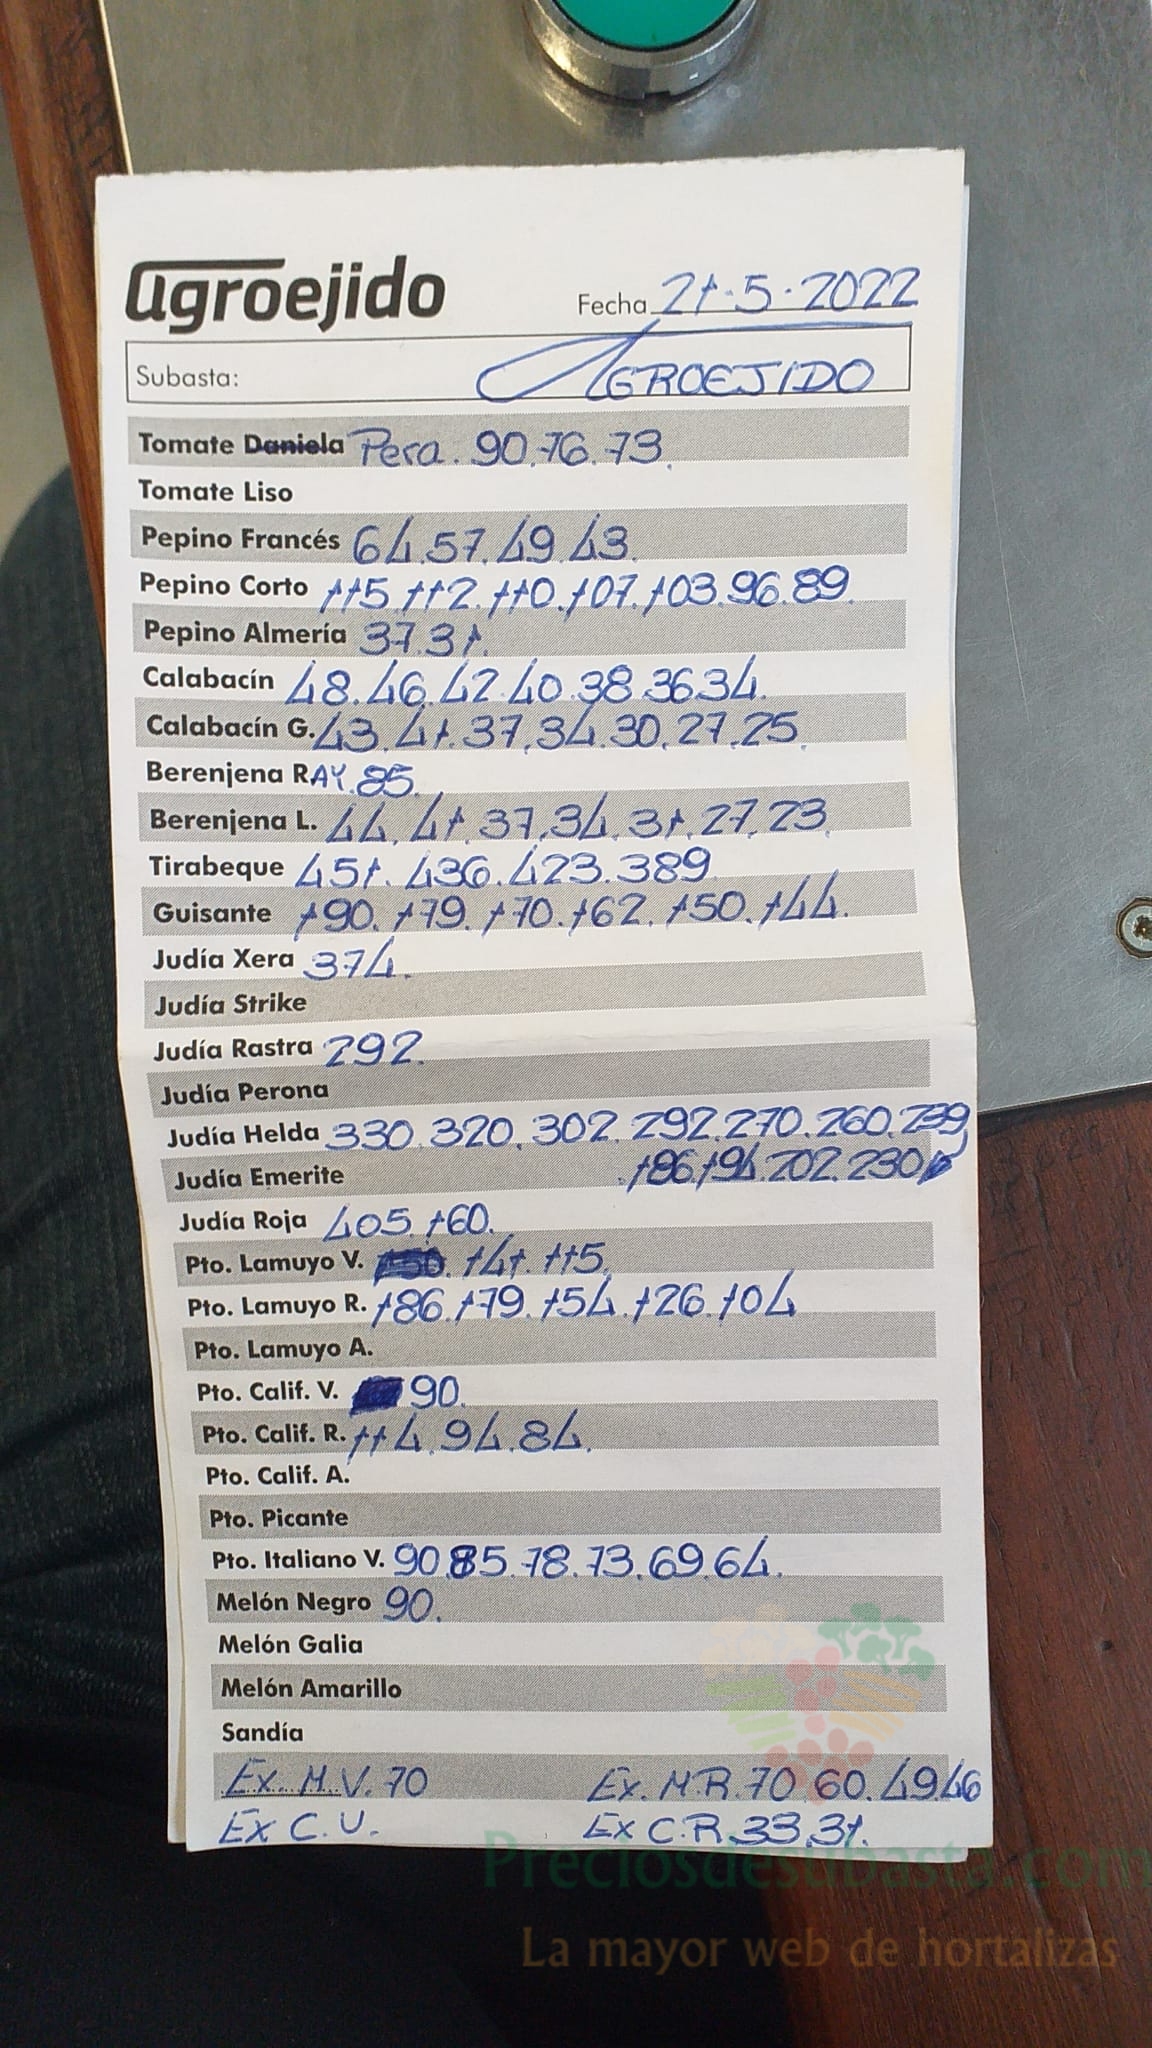 agroejido
Fecha 21.5.2022
Subasta: AGROEJIDO
Tomate Daniela Pera. 90.76.73.
Tomate Liso
Pepino Francés 64.57.49.43.
Pepino Corto 115.112.110.107.103.96.89.
Pepino Almería 37.31.
Calabacín 48.46.42.40.38.36.34.
Calabacín G. 43.41.37.34.30.27.25.
Berenjena RAY.85.
Berenjena L. 44.41.37.34.31.27.23.
Tirabeque 451.436.423.389.
Guisante 190.179.170.162.150.144.
Judía Xera 374.
Judía Strike
Judía Rastra 292.
Judía Perona
Judía Helda 330.320.302.292.270.260.239,
Judía Emerite .186.194.202.230
Judía Roja 405.160.
Pto. Lamuyo V. 141.115.
Pto. Lamuyo R. 186.179.154.126.104
Pto. Lamuyo A.
Pto. Calif. V. 90.
Pto. Calif. R. 114.94.84.
Pto. Calif. A.
Pto. Picante
Pto. Italiano V. 90.85.78.73.69.64.
Melón Negro 90.
Melón Galia
Melón Amarillo
Sandía
Ex. M.V. 70 Ex. M.R. 70.60.49.46
Ex C.V. Ex C.R. 33.31.
Preciosdesubasta.com
La mayor web de hortalizas